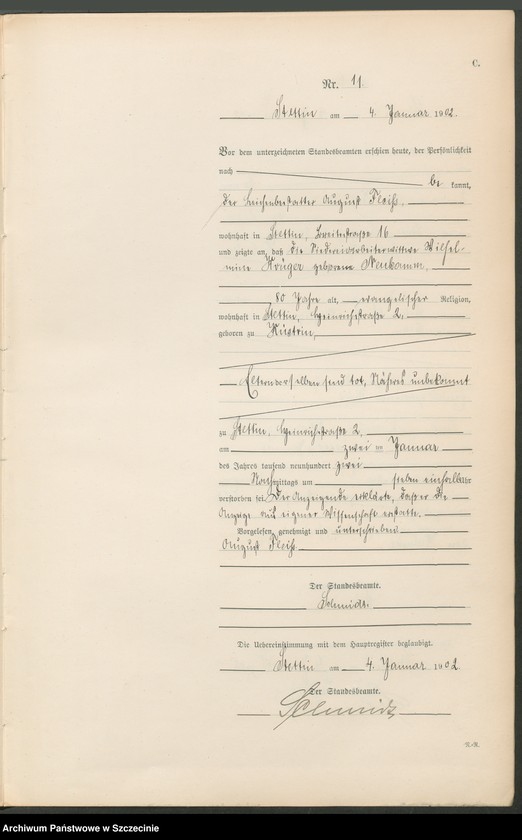 C.
Nr. 11
Stettin am 4. Januar 1902.
Vor dem unterzeichneten Standesbeamten erschien heute, der Persönlichkeit
nach
be kannt,
der Leichenbestatter August Fleiß,
wohnhaft in Stettin, Breitestraße 16
und zeigte an, daß die Wilhel-
mine Krüger geborene Neukamm,
80 Jahre alt, evangelischer Religion,
wohnhaft in Stettin, Heinrichstraße 2,
geboren zu Küstrin,
Eltern derselben sind tot, Näheres unbekannt
zu Stettin, Heinrichstraße 2,
am zwei ten Januar
des Jahres tausend neunhundert zwei
Nachmittags um sieben einhalb Uhr
verstorben sei. Der Anzeigende erklärte, daß er die
Anzeige aus eigener Wissenschaft erstatte.
Vorgelesen, genehmigt und unterschrieben
August Fleiß
Der Standesbeamte.
Schmidt.
Die Uebereinstimmung mit dem Hauptregister beglaubigt.
Stettin am 4. Januar 1902
Der Standesbeamte.
Schmidt
Archiwum Państwowe w Szczecinie